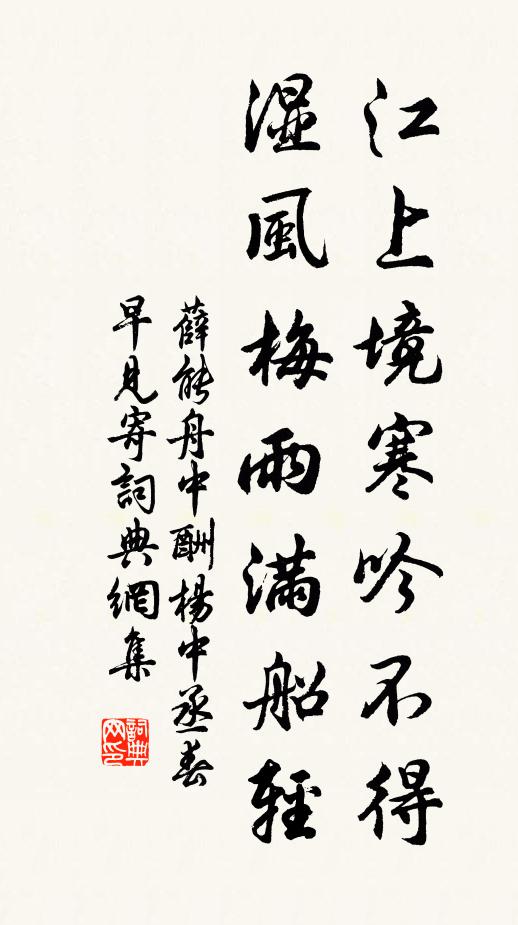 江上境寒吟不得
湿風梅雨滿船輕
薛能舟中酬楊中丞春
早見寄詞典網集
詞典
网印